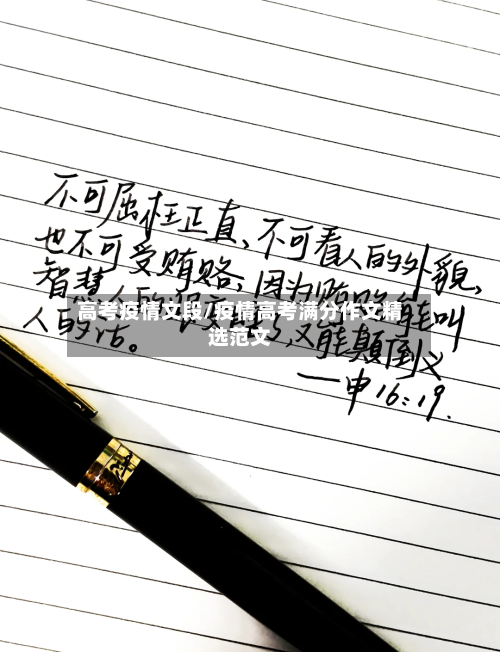 不可屈枉正直、不可看人的外貌，
也不可受贿赂；因为贿赂能叫
智慧人的
人的话。
又能颠倒义
高考疫情文段/疫情高考满分作文精
选范文
—申16:19.